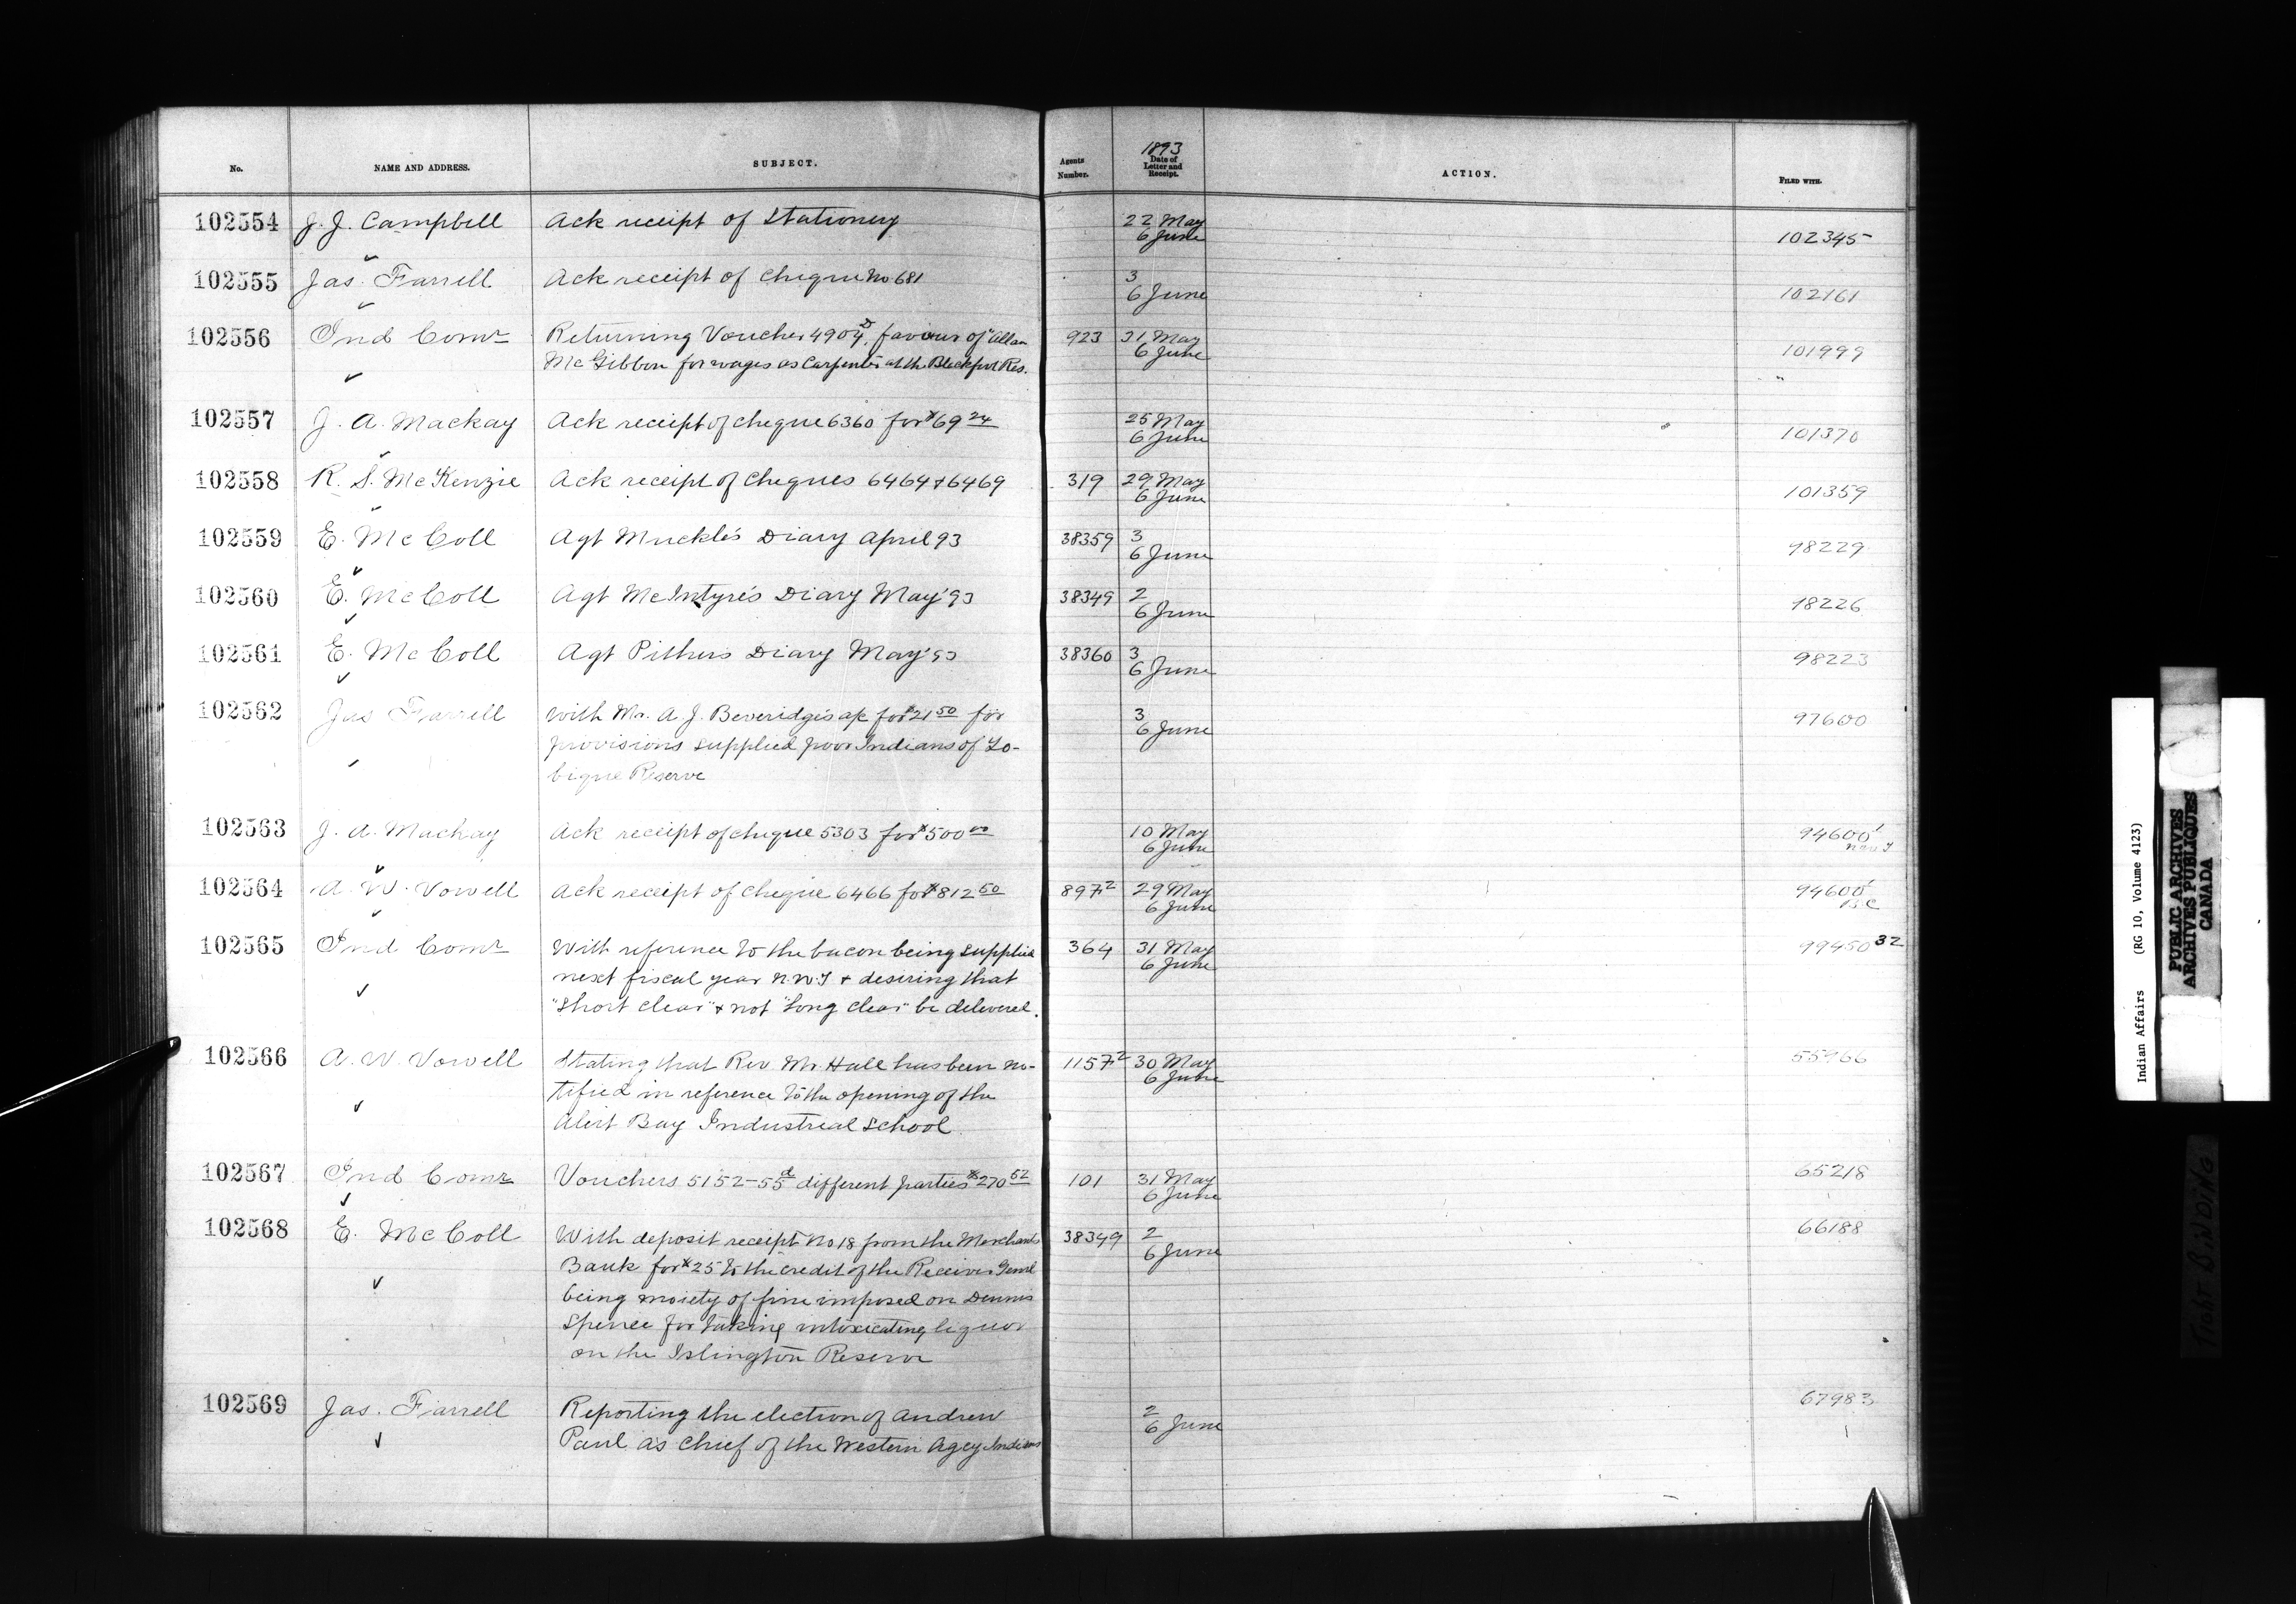 No. NAME AND ADDRESS. SUBJECT. Agents Number. 1893 Date of Letter and Receipt. ACTION. FILED WITH.
102554 J. J. Campbell Ack receipt of Stationery 22 May
6 June 102345
102555 Jas. Farrell Ack receipt of Cheque No 681 3
6 June 102161
102556 Ind Comr Returning Voucher 4904 D, favour of "Allan 923 31 May
McGibbon for wages as Carpenter at the Blackfoot Res. 6 June 101999
102557 J. A. Mackay Ack receipt of cheque 6360 for $69 24 25 May
6 June 101370
102558 R. S. McKenzie Ack receipt of Cheques 6464 + 6469 319 29 May
6 June 101359
102559 E. McColl Agt Muckle's Diary April 93 38359 3
6 June 98229
102560 E. McColl Agt McIntyre's Diary May '93 38349 2
6 June 98226
102561 E. McColl Agt Pithers Diary May '93 38360 3
6 June 98223
102562 Jas Farrell With Mr. A. J. Beveridge's a/c for $21 50 for 3
6 June 97600
provisions supplied poor Indians of To-
bique Reserve
102563 J. A. Mackay Ack receipt of cheque 5303 for $500 00 10 May
6 June 94600
102564 A. W. Vowell Ack receipt of Cheque 6466 for $812 50 897 2 29 May
6 June 94600 B.C
102565 Ind Comr With reference to the bacon being supplied 364 31 May 99450 32
next fiscal year N.W.T + desiring that 6 June
"Short clear" + not "Long clear" be delivered.
102566 A. W. Vowell Stating that Rev. Mr. Hall has been no- 1157 2 30 May 55966
tified in reference to the opening of the 6 June
Alert Bay Industrial School
102567 Ind Comr Vouchers 5152-55 d different parties $270 52 101 31 May 65218
6 June
102568 E. McColl With deposit receipt No 18 from the Merchants 38349 2 66188
Bank for $25 to the credit of the Receiver Genl 6 June
being moiety of fine imposed on Dennis
Spence for taking intoxicating liquor
on the Islington Reserve
102569 Jas. Farrell Reporting the election of Andrew 2 67983
Paul as Chief of the Western Agcy Indians 6 June
Indian Affairs (RG 10, Volume 4123)
PUBLIC ARCHIVES
ARCHIVES PUBLIQUES
CANADA
TIGHT BINDING